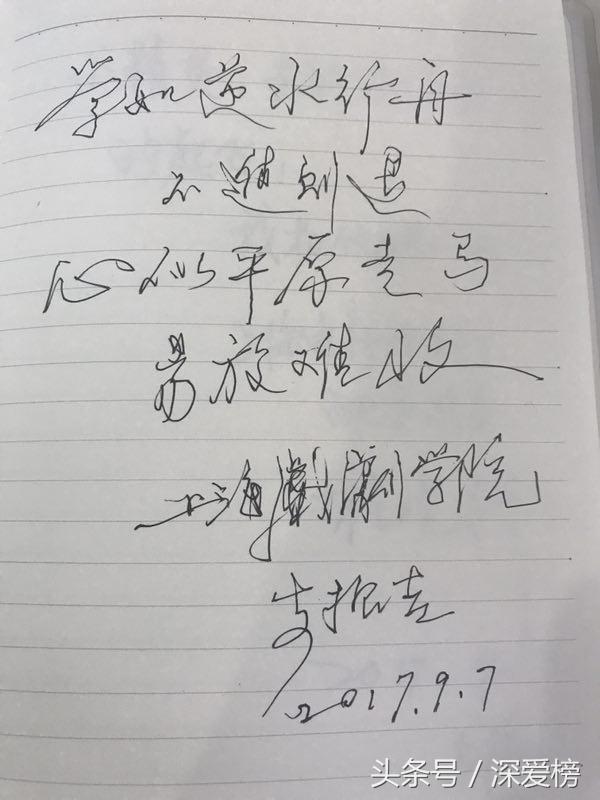 学如逆水行舟
不進則退
心似平原走马
易放难收
上海戲劇学院
2017.9.7
头条号／深爱榜